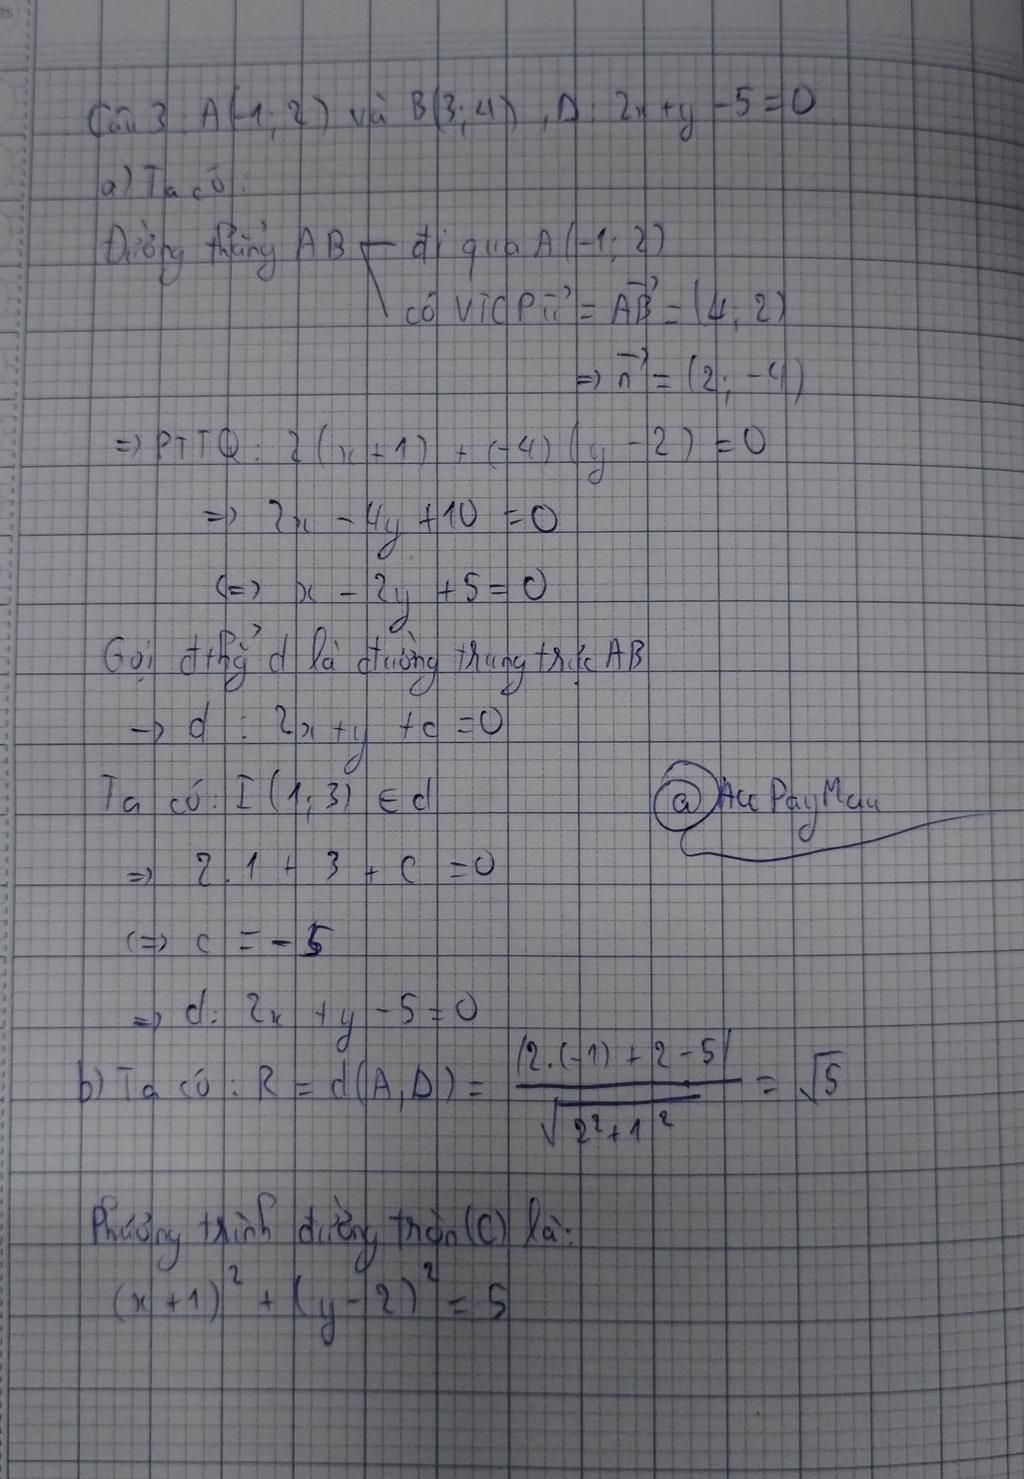 Câu 3: A(-1; 2) và B(3; 4), D: 2x + y - 5 = 0
a) Ta có:
Đường thẳng AB đi qua A(-1; 2)
có VTCP u⃗ = AB⃗ = (4; 2)
=> n⃗ = (2; -4)
=> PTTQ: 2(x + 1) + (-4)(y - 2) = 0
=> 2x - 4y + 10 = 0
<=> x - 2y + 5 = 0
Gọi đthg d là đường trung trực AB
-> d : 2x + y + c = 0
Ta có: I(1; 3) ∈ d
@ Acc Pay Mau
=> 2.1 + 3 + c = 0
<=> c = -5
=> d: 2x + y - 5 = 0
b) Ta có: R = d(A, D) = |2.(-1) + 2 - 5| / √(2² + 1²) = √5
Phương trình đường tròn (C) là:
(x + 1)² + (y - 2)² = 5